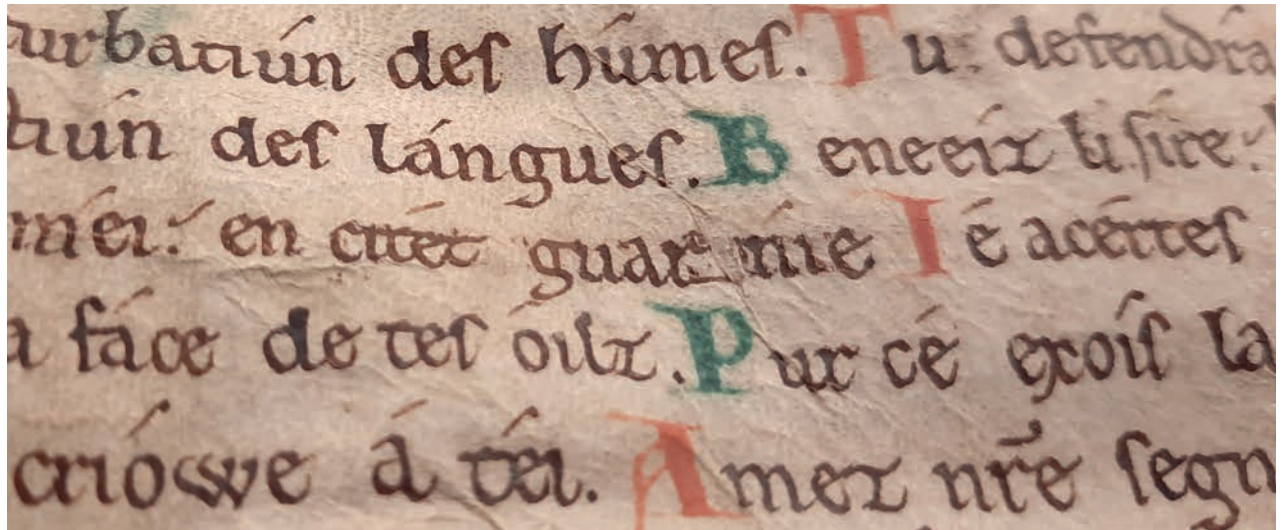 turbatiún des húmes. Tu. defendrá
tiún des lángues. Beneeiz li sire:
méi: en citét guarnie Ié acértes
a fáce de tes óilz. Pur cé exoís la
criówe á téi. Amez nr̃e segn